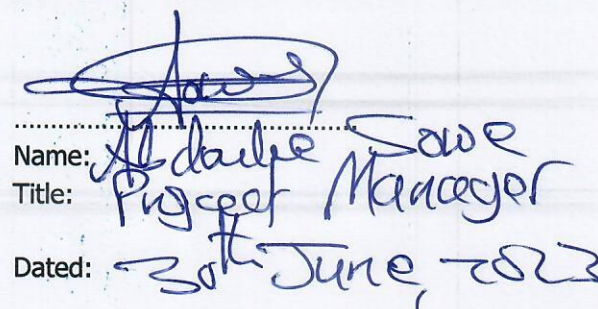 Name: Abdoulie Sowe
Title: Project Manager
Dated: 30th June, 2023